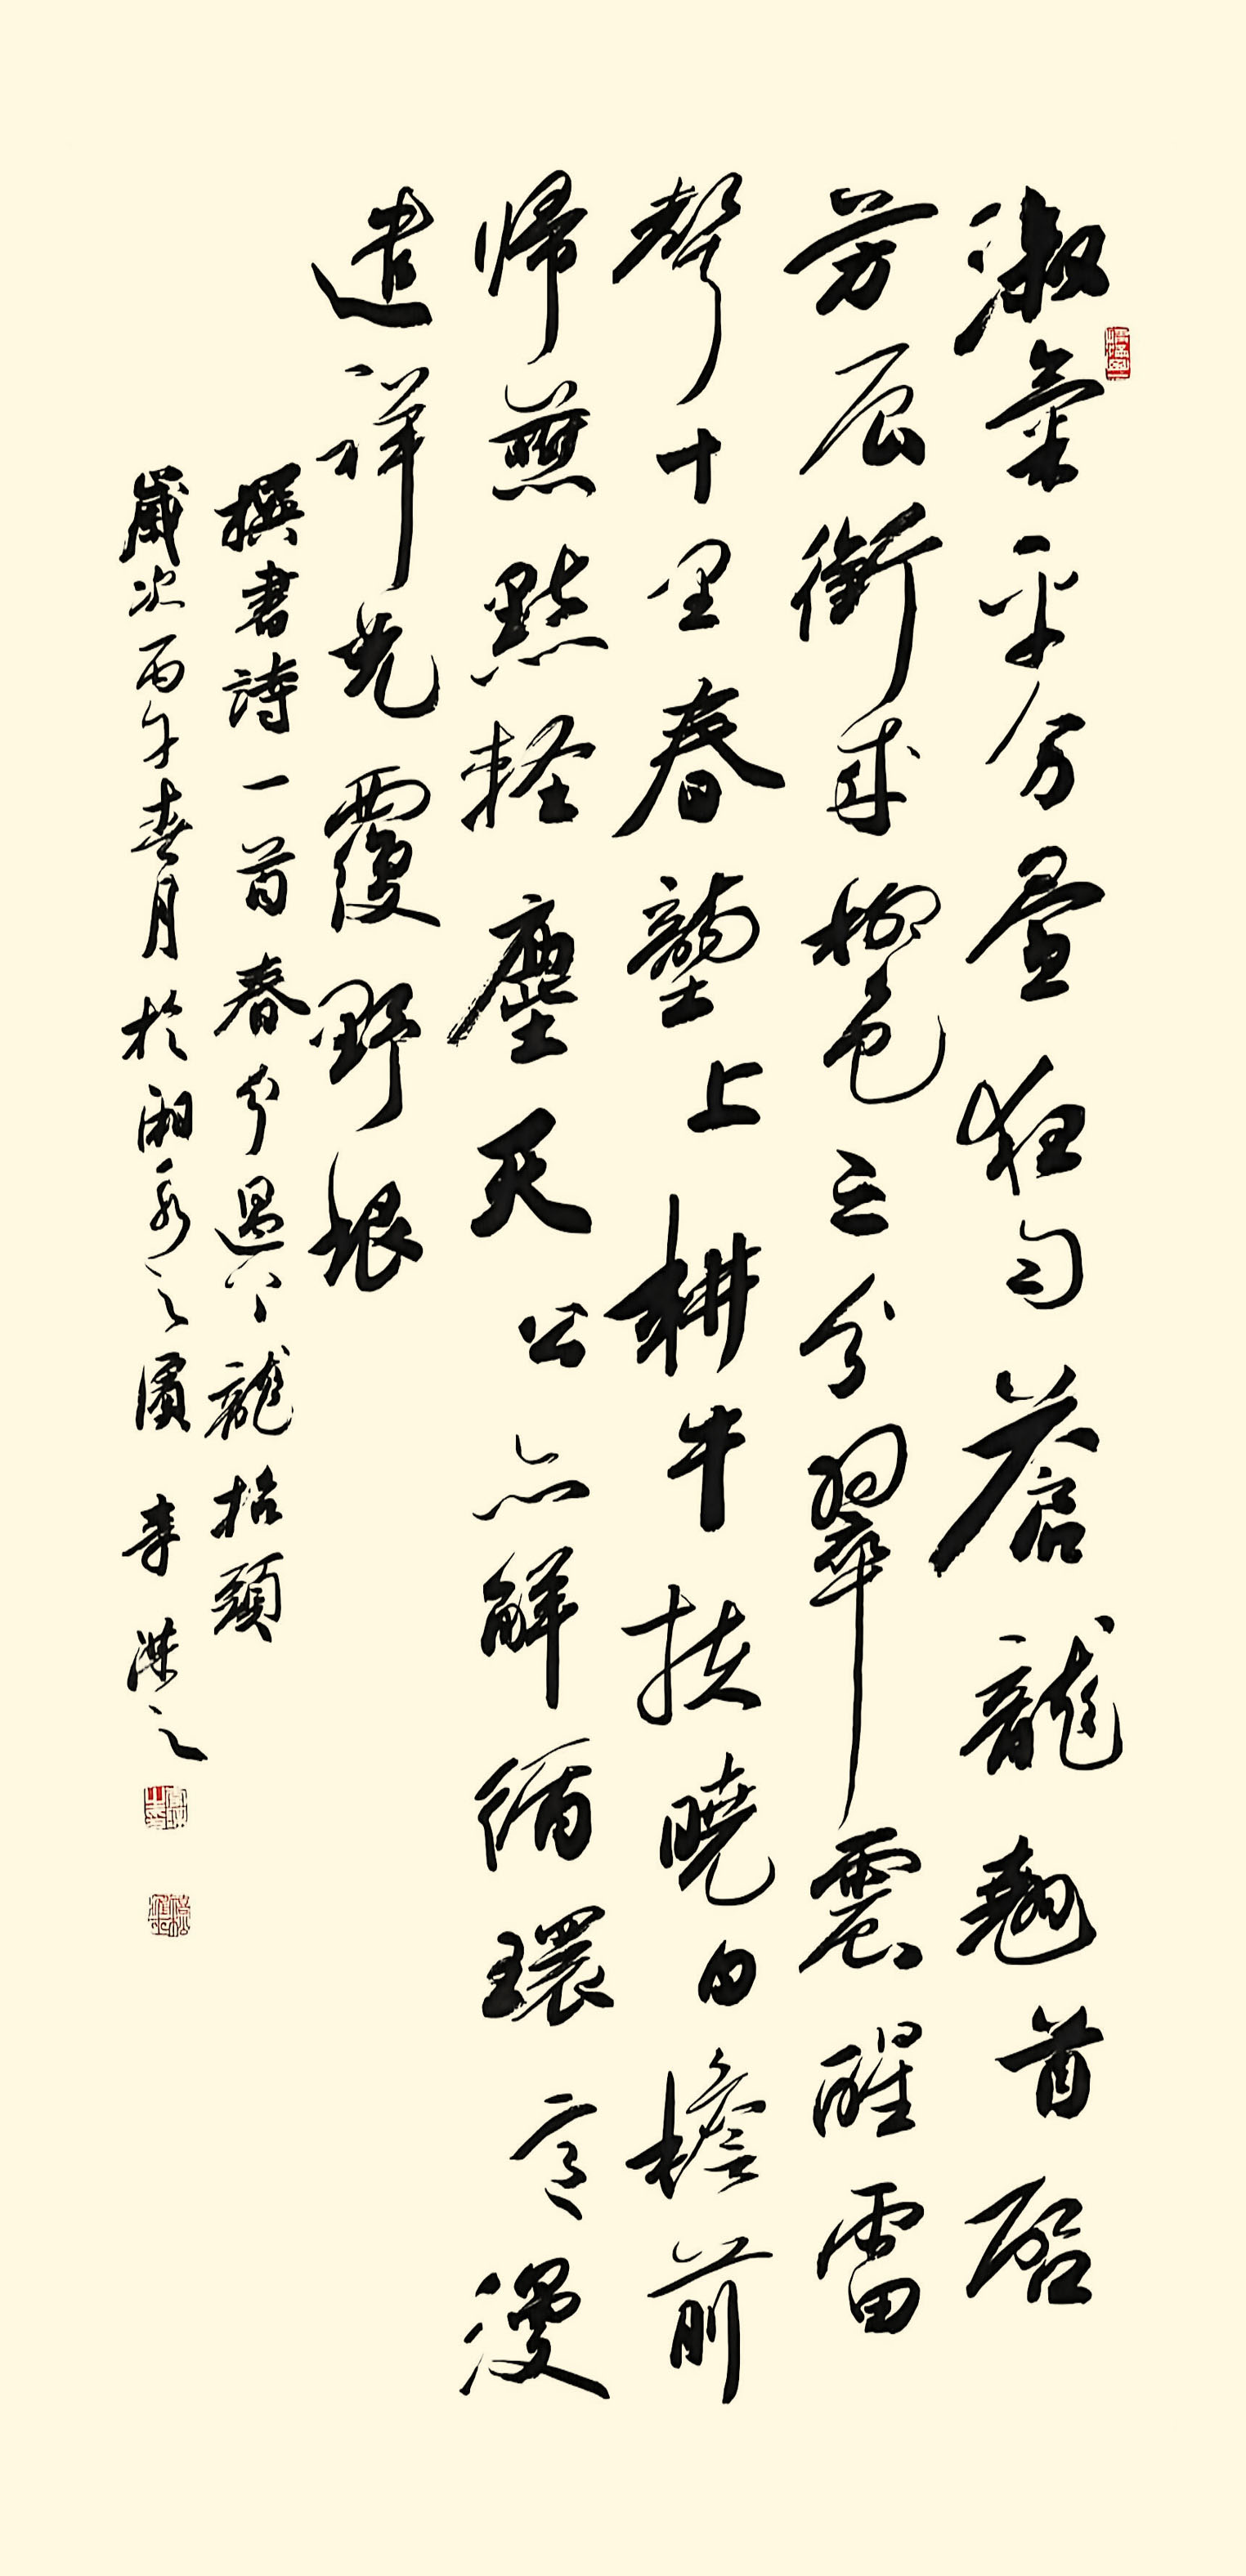 淑氣平分晝夜勻蒼龍翹首啟
芳辰銜來柳色三分翠震醒雷
聲十里春壟上耕牛扶曉日檐前
帰燕點軽塵天公亦解循環意漫
遣祥光覆野垠
撰書詩一首春分遇上龍抬頭
歲次丙午春月於湘永之濱 李之